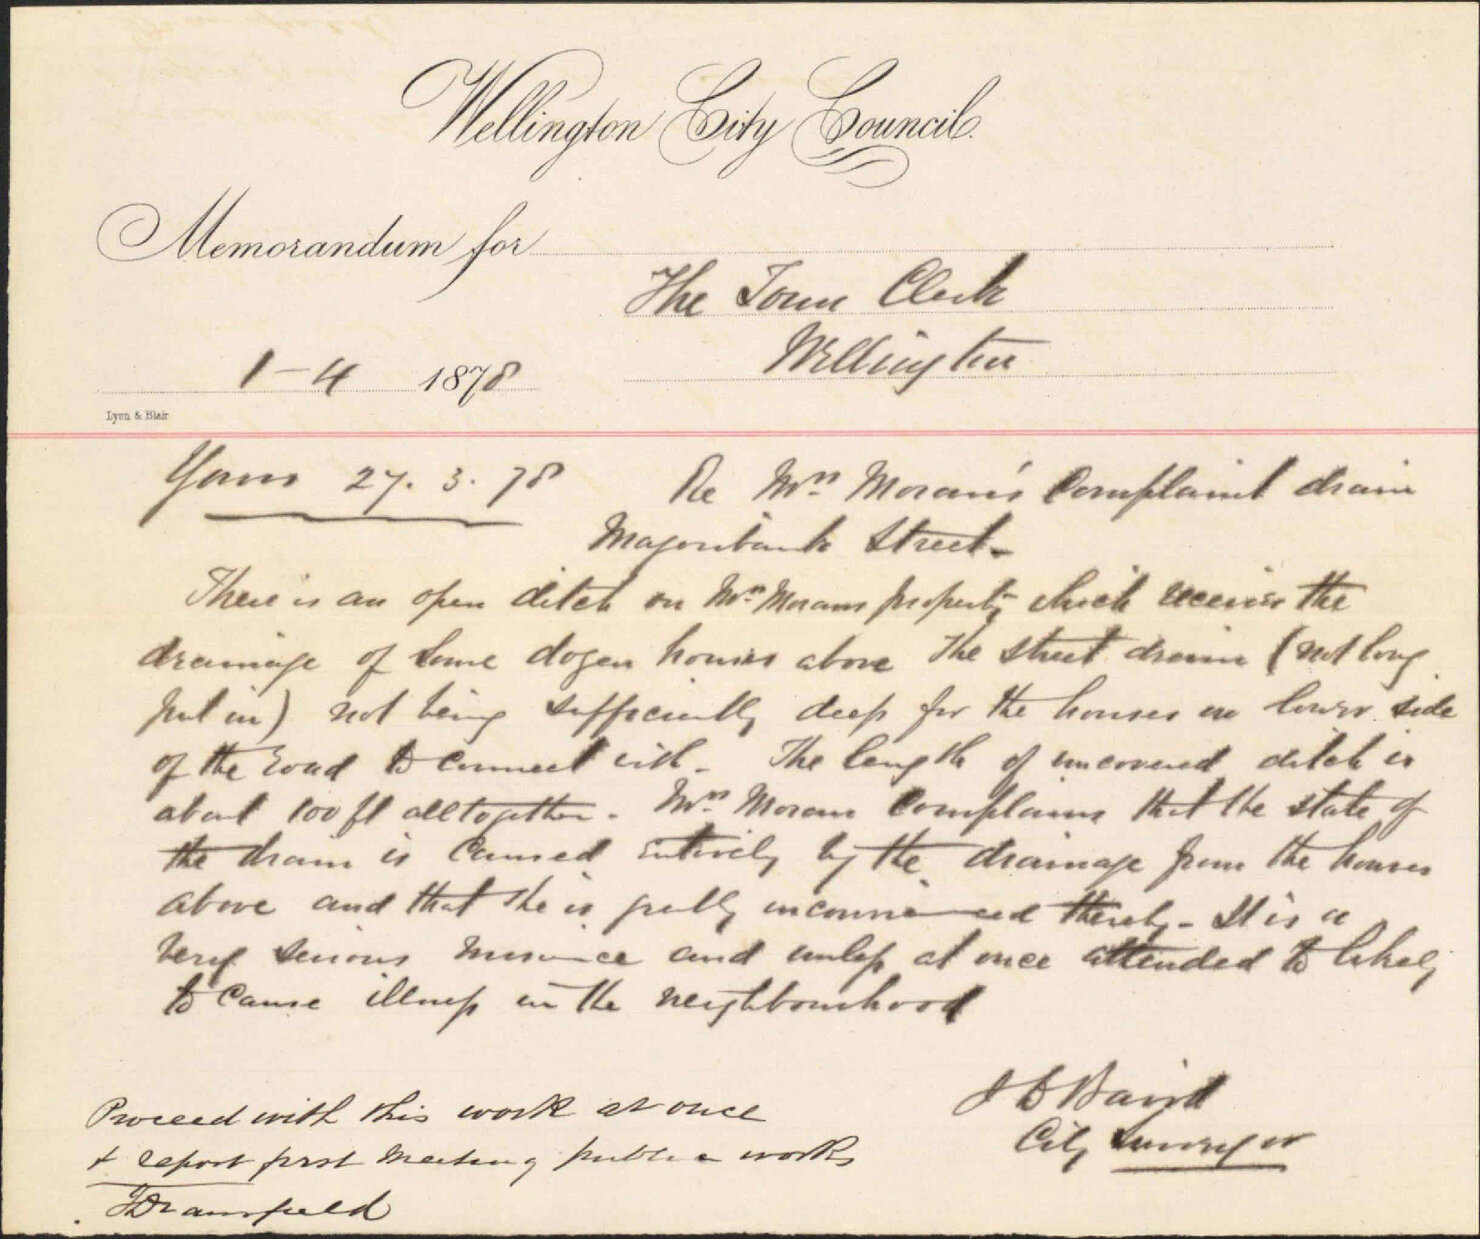 Wellington City Council.
Memorandum for
The Town Clerk
Wellington
1-4 1878
Lyon & Blair
Yours 27.3.78 Re Mrs Moran's Complaint drain
Majoribanks Street-
There is an open ditch on Mrs Morans property which receives the
drainage of some dozen houses above The street drain (not long
put in) not being sufficiently deep for the houses on lower side
of the road to connect with- The length of uncovered ditch is
about 100 ft alltogether. Mrs Moran complains that the state of
the drain is caused entirely by the drainage from the houses
above and that she is greatly inconvenienced thereby- It is a
very serious nuisance and unless at once attended to likely
to cause illness in the neighbourhood
J D Baird
City Surveyor
Proceed with this work at once
& report first meeting public works
J Dransfield